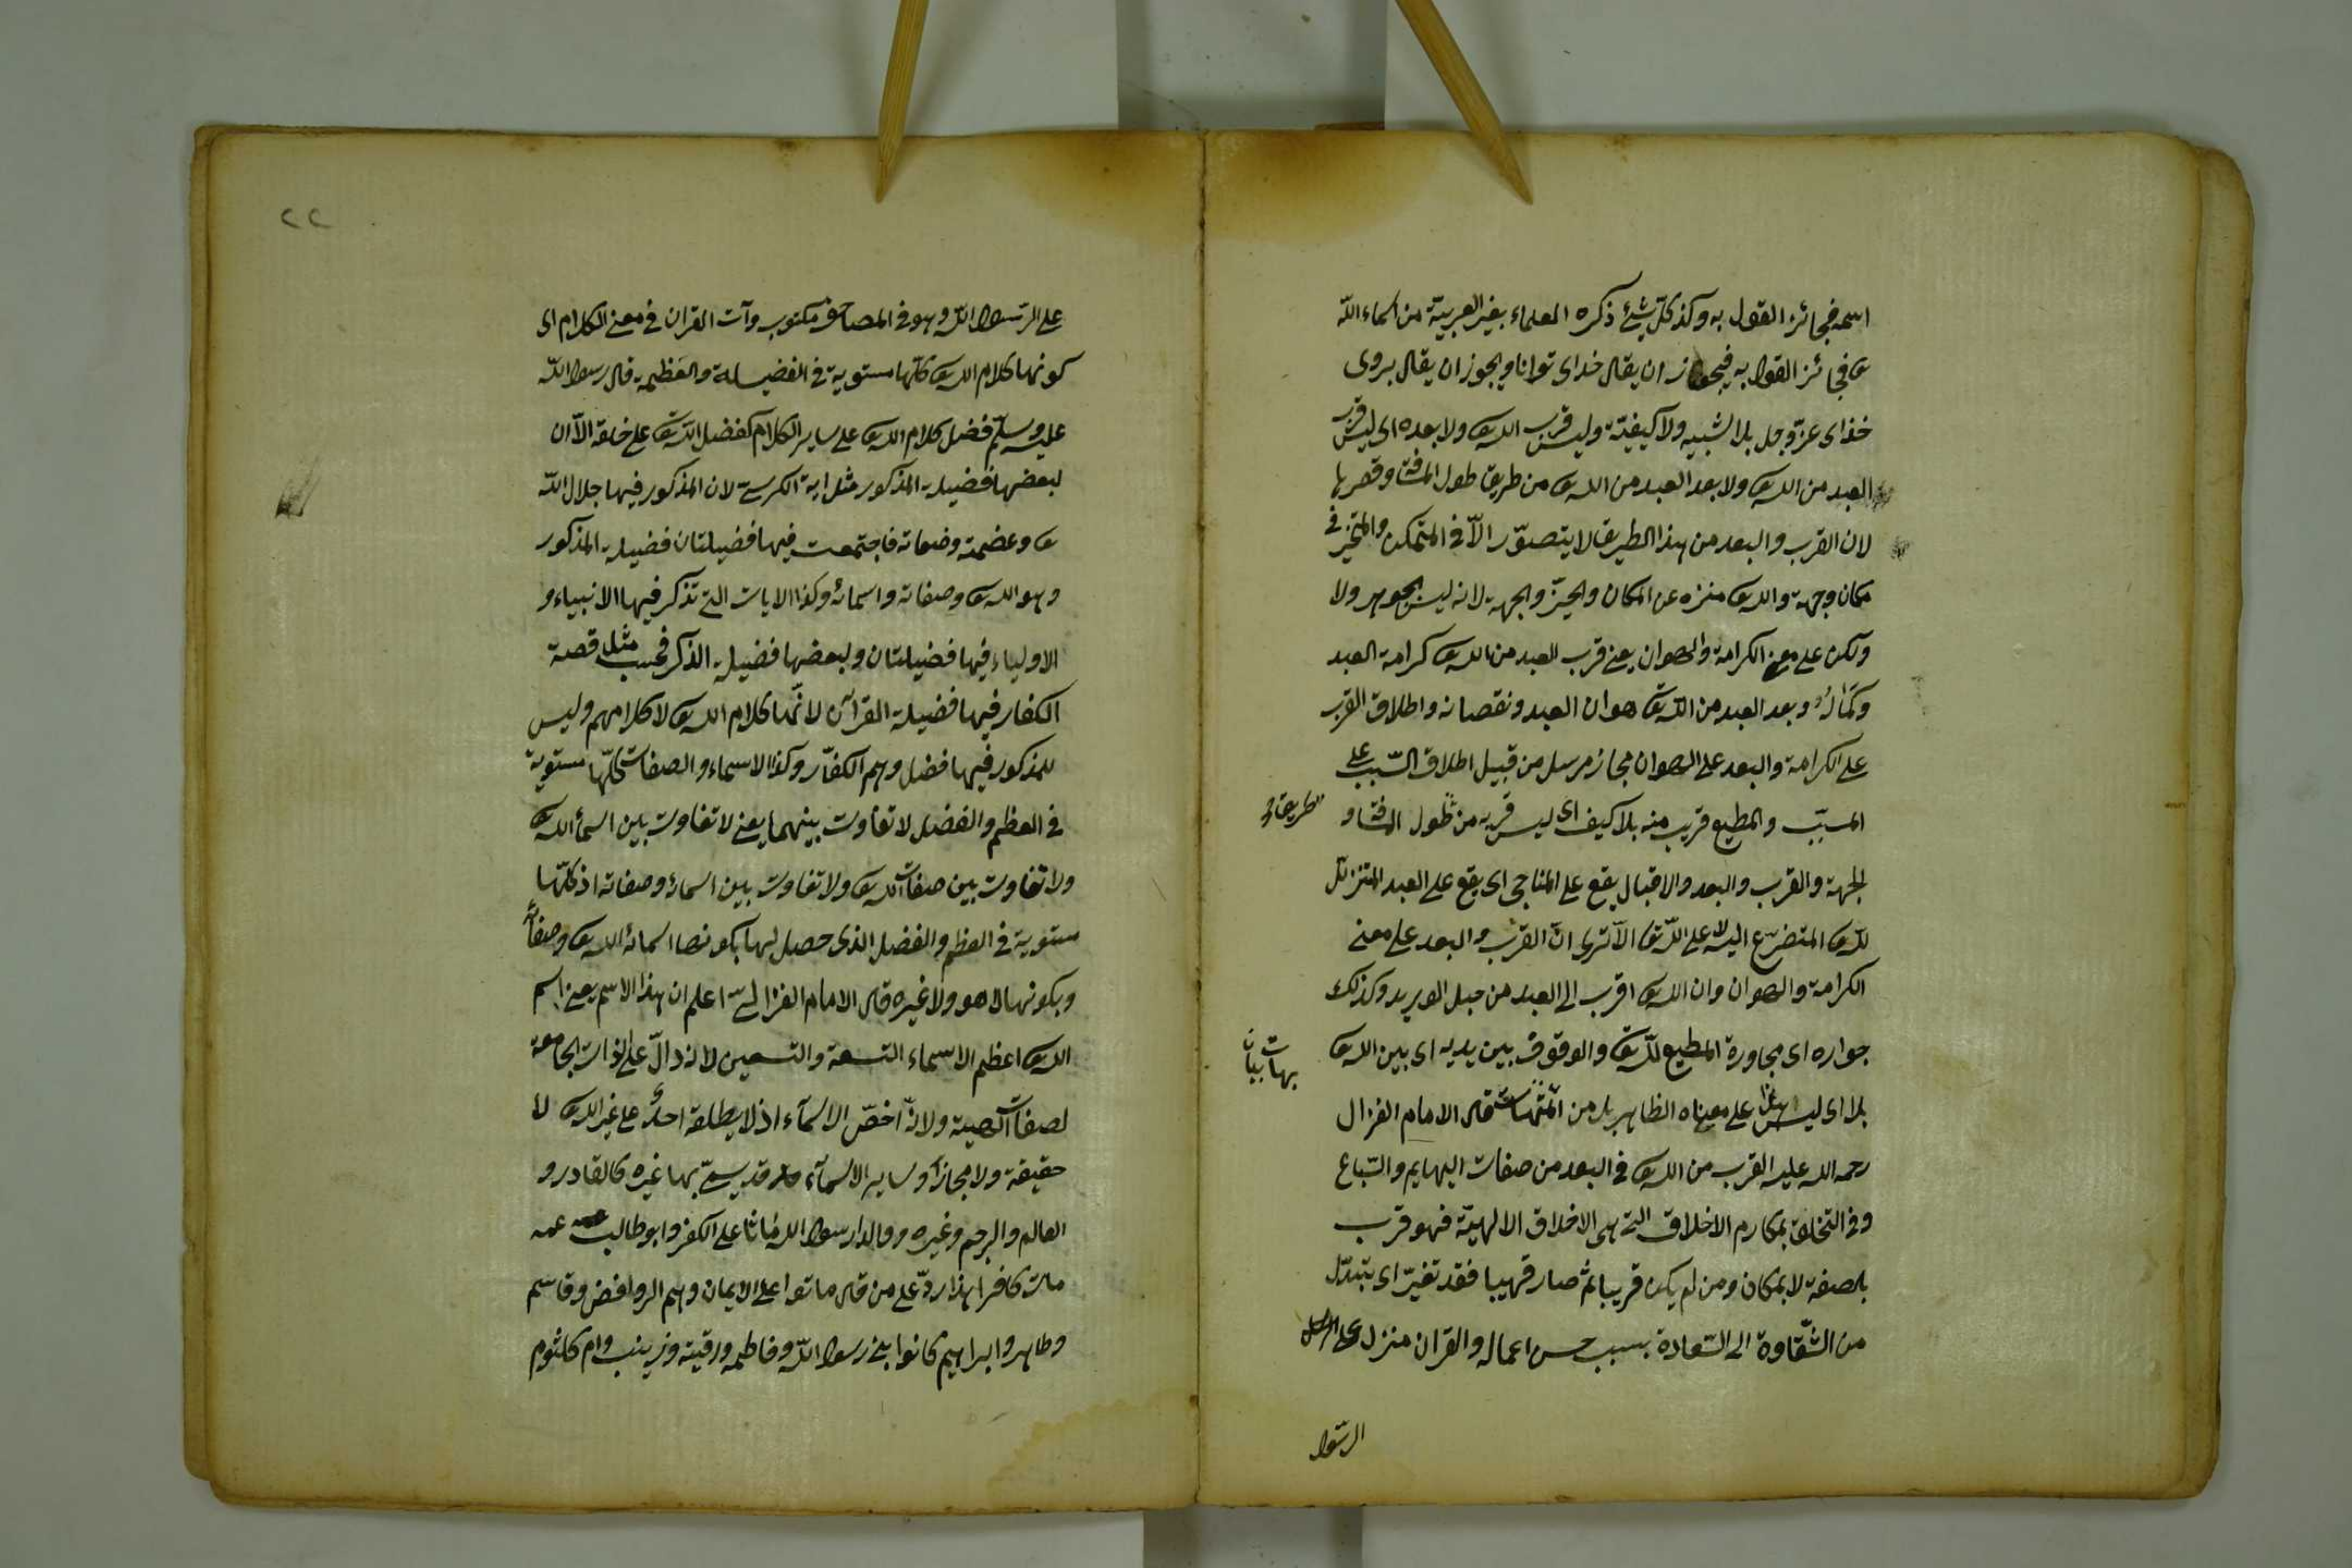 اسمه فجائز القول به وكذا كل شئ ذكره العلماء بغير العربية من اسماء الله
تع فجائز القول به فيجوز ان يقال خداى توانا ويجوز ان يقال بروى
خداى عزّ وجل بلا تشبيه ولا كيفيّة وليس قرب الله تع ولا بعده اى ليس قرب
العبد من الله تع ولا بعد العبد من الله تع من طريق طول المسافة وقصرها
لان القرب والبعد من هذا الطريق لا يتصوّر الّا فى المتمكن والمتحيّز فى
مكان وجهة والله تع منزه عن المكان والحيّز والجهة لانه ليس بجوهر ولا
ولكن على معنى الكرامة والهوان يعنى قرب العبد من الله تع كرامة العبد
وكماله وبعد العبد من الله تع هوان العبد ونقصانه واطلاق القرب
على الكرامة والبعد على الهوان مجاز مرسل من قبيل اطلاق السّبب على
المسبّب والمطيع قريب منه بلا كيف اى ليس قربه من طول المسافة و
الجهة والقرب والبعد والاقبال يقع على المناجى اى يقع على العبد المتنزّل
للّه تع المتضرّع اليه لا على اللّه تع الا ترى انّ القرب والبعد على معنى
الكرامة والهوان وان الله تع اقرب الى العبد من حبل الوريد وكذلك
جواره اى مجاورة المطيع للّه تع والوقوف بين يديه اى بين الله تع
بلا اى ليس هذا على معناه الظاهر بل من المتشابهات قال الامام الغزال
رحمه الله عليه القرب من الله تع فى البعد من صفات البهايم والسّباع
وفى التخلق بمكارم الاخلاق التى هى الاخلاق الالهيّة فهو قرب
بالصفة لا بمكان ومن لم يكن قريبا ثم صار قريبا فقد تغيّر اى يتبدّل
من الشّقاوة الى السّعادة بسبب حسن اعماله والقران منزل على
الرسّول
٢٢
على الرّسول اللّه وهو فى المصاحف مكتوب وآيات القران فى معنى الكلام اى
كونها كلام الله تع كلّها مستوية فى الفضيلة والعظيمة قال رسول اللّه
عليه وسلّم فضل كلام الله تع على ساير الكلام كفضل الله تع على خلقه الّا ان
لبعضها فضيلة المذكور مثل اية الكرسى لان المذكور فيها جلال اللّه
تع وعضمته وضفاته فاجتمعت فيها فضيلتان فضيلة المذكور
وهو الله تع وصفاته واسمائه وكذا الايات التى تذكر فيها الانبياء و
الاولياء فيها فضيلتان ولبعضها فضيلة الذكر فحسب مثل قصة
الكفار فيها فضيلة القرآن لانّها كلام الله تع لا كلامهم وليس
للمذكور فيها فضل وهم الكفّار وكذا الاسماء والصفات كلّها مستوية
فى العظم والفضل لا تفاوت بينهما يعنى لا تفاوت بين اسماء الله تع
ولا تفاوت بين صفات الله تع ولا تفاوت بين اسمائه وصفاته اذ كلّها
مستوية فى العظم والفضل الذى حصل لها بكونها اسماء الله تع وصفاته
وبكونها لا هو ولا غيره قال الامام الغزالى اعلم ان هذا الاسم يعنى اسم
الله تع اعظم الاسماء التسعة والتسعين لانه دالّ على الذات الجامعة
لصفات الٓهية ولانّه اخصّ الاسماء اذ لا يطلق احدٌ على غير الله تع لا
حقيقة ولا مجازا وساير الاسماء قد يسمّى بها غيره كالقادر و
العالم والرحيم وغيره ووالدا رسول الله ماتا على الكفر وابو طالب عمه
مات كافرا هذا ردّ على من قال ماتوا على الايمان وهم الروافض وقاسم
وطاهر وابراهيم كانوا بنى رسول اللّه وفاطمه ورقية وزينب وام كلثوم